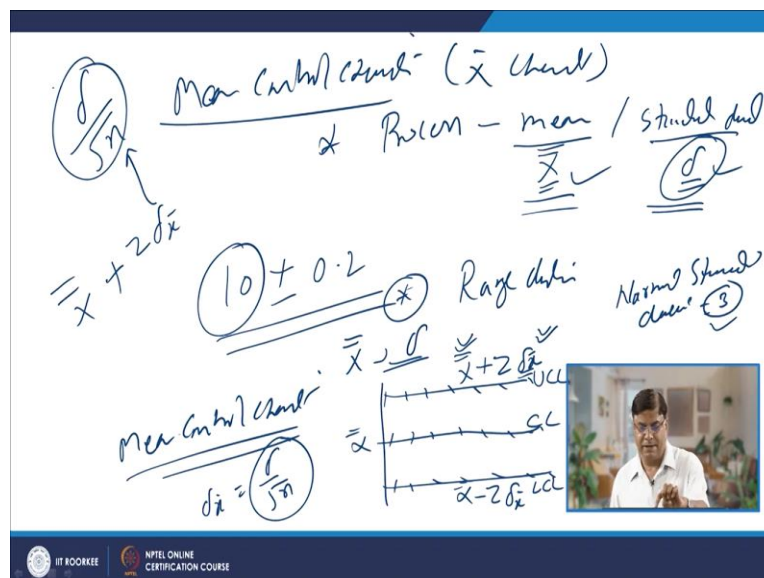 Mean Control Chart (x̄ Chart)
σ/√n
* Process - mean / standard dev
x̿ σ
x̿ + 2σx̄
10 ± 0.2
*
Normal Standard
3
x̿, σ
x̿ + 2σx̄
UCL
Mean Control Chart
x̿ CL
σx̄ = σ/√n
x̿ - 2σx̄ LCL
IIT ROORKEE
NPTEL ONLINE
CERTIFICATION COURSE